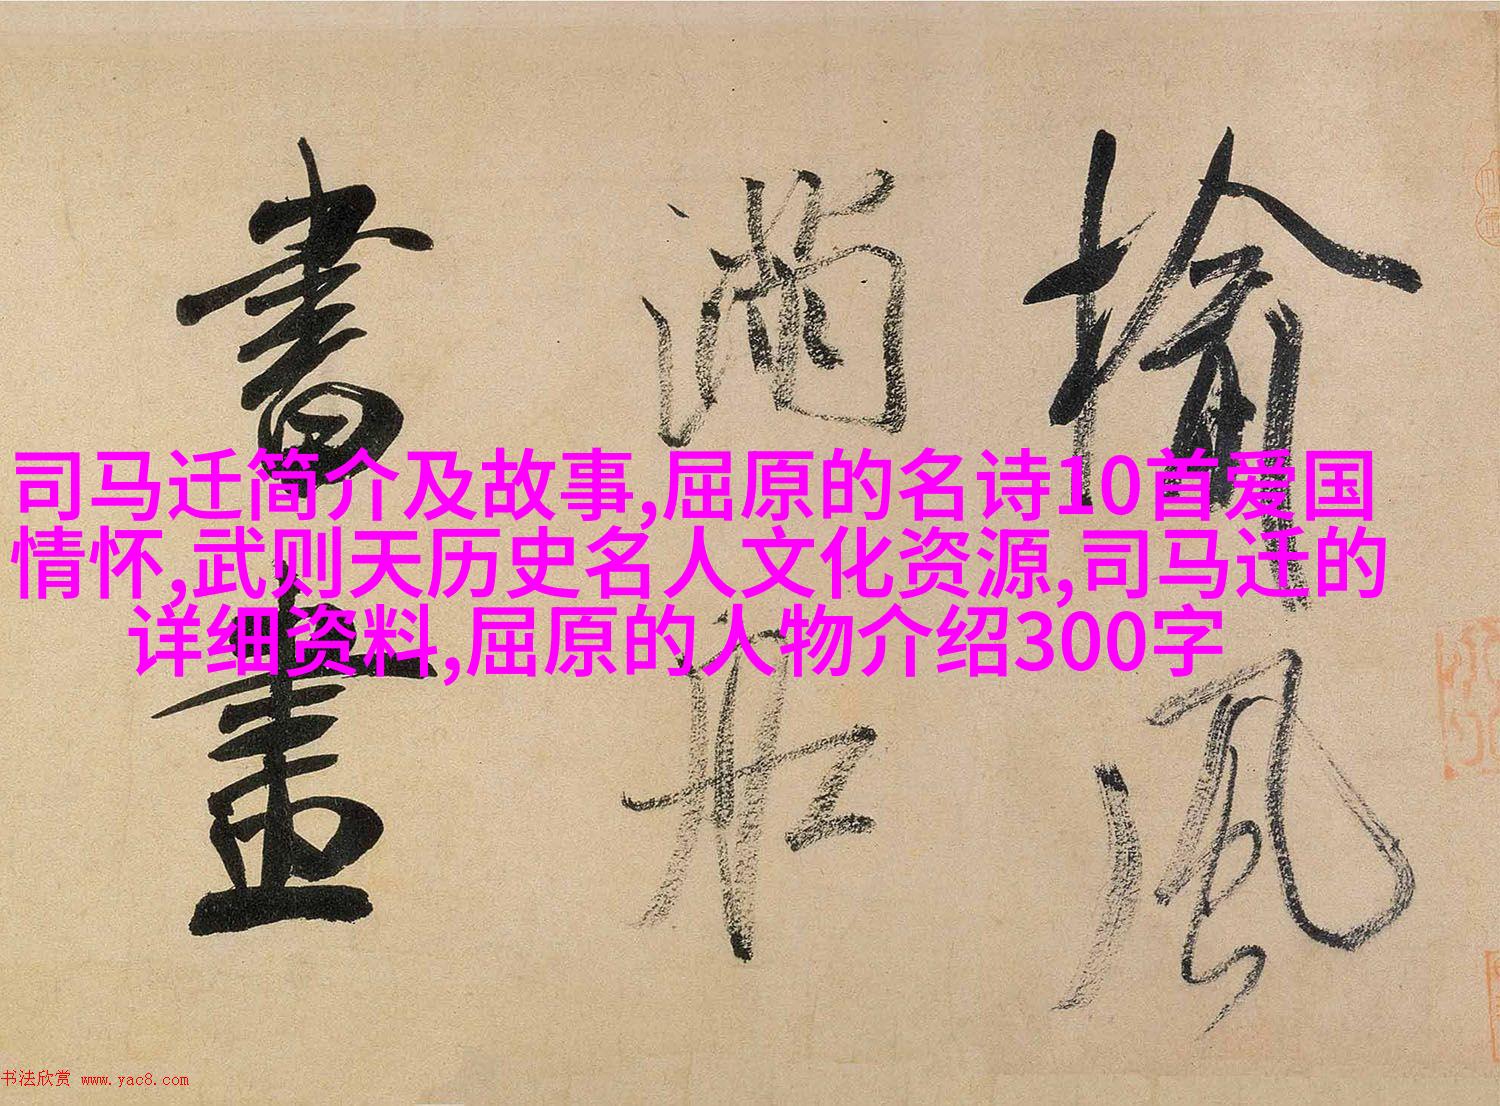 榆風
滿船
書畫
司马迁简介及故事,屈原的名诗10首爱国
情怀,武则天历史名人文化资源,司马迁的
详细资料,屈原的人物介绍300字
书法欣赏 www.yac8.com